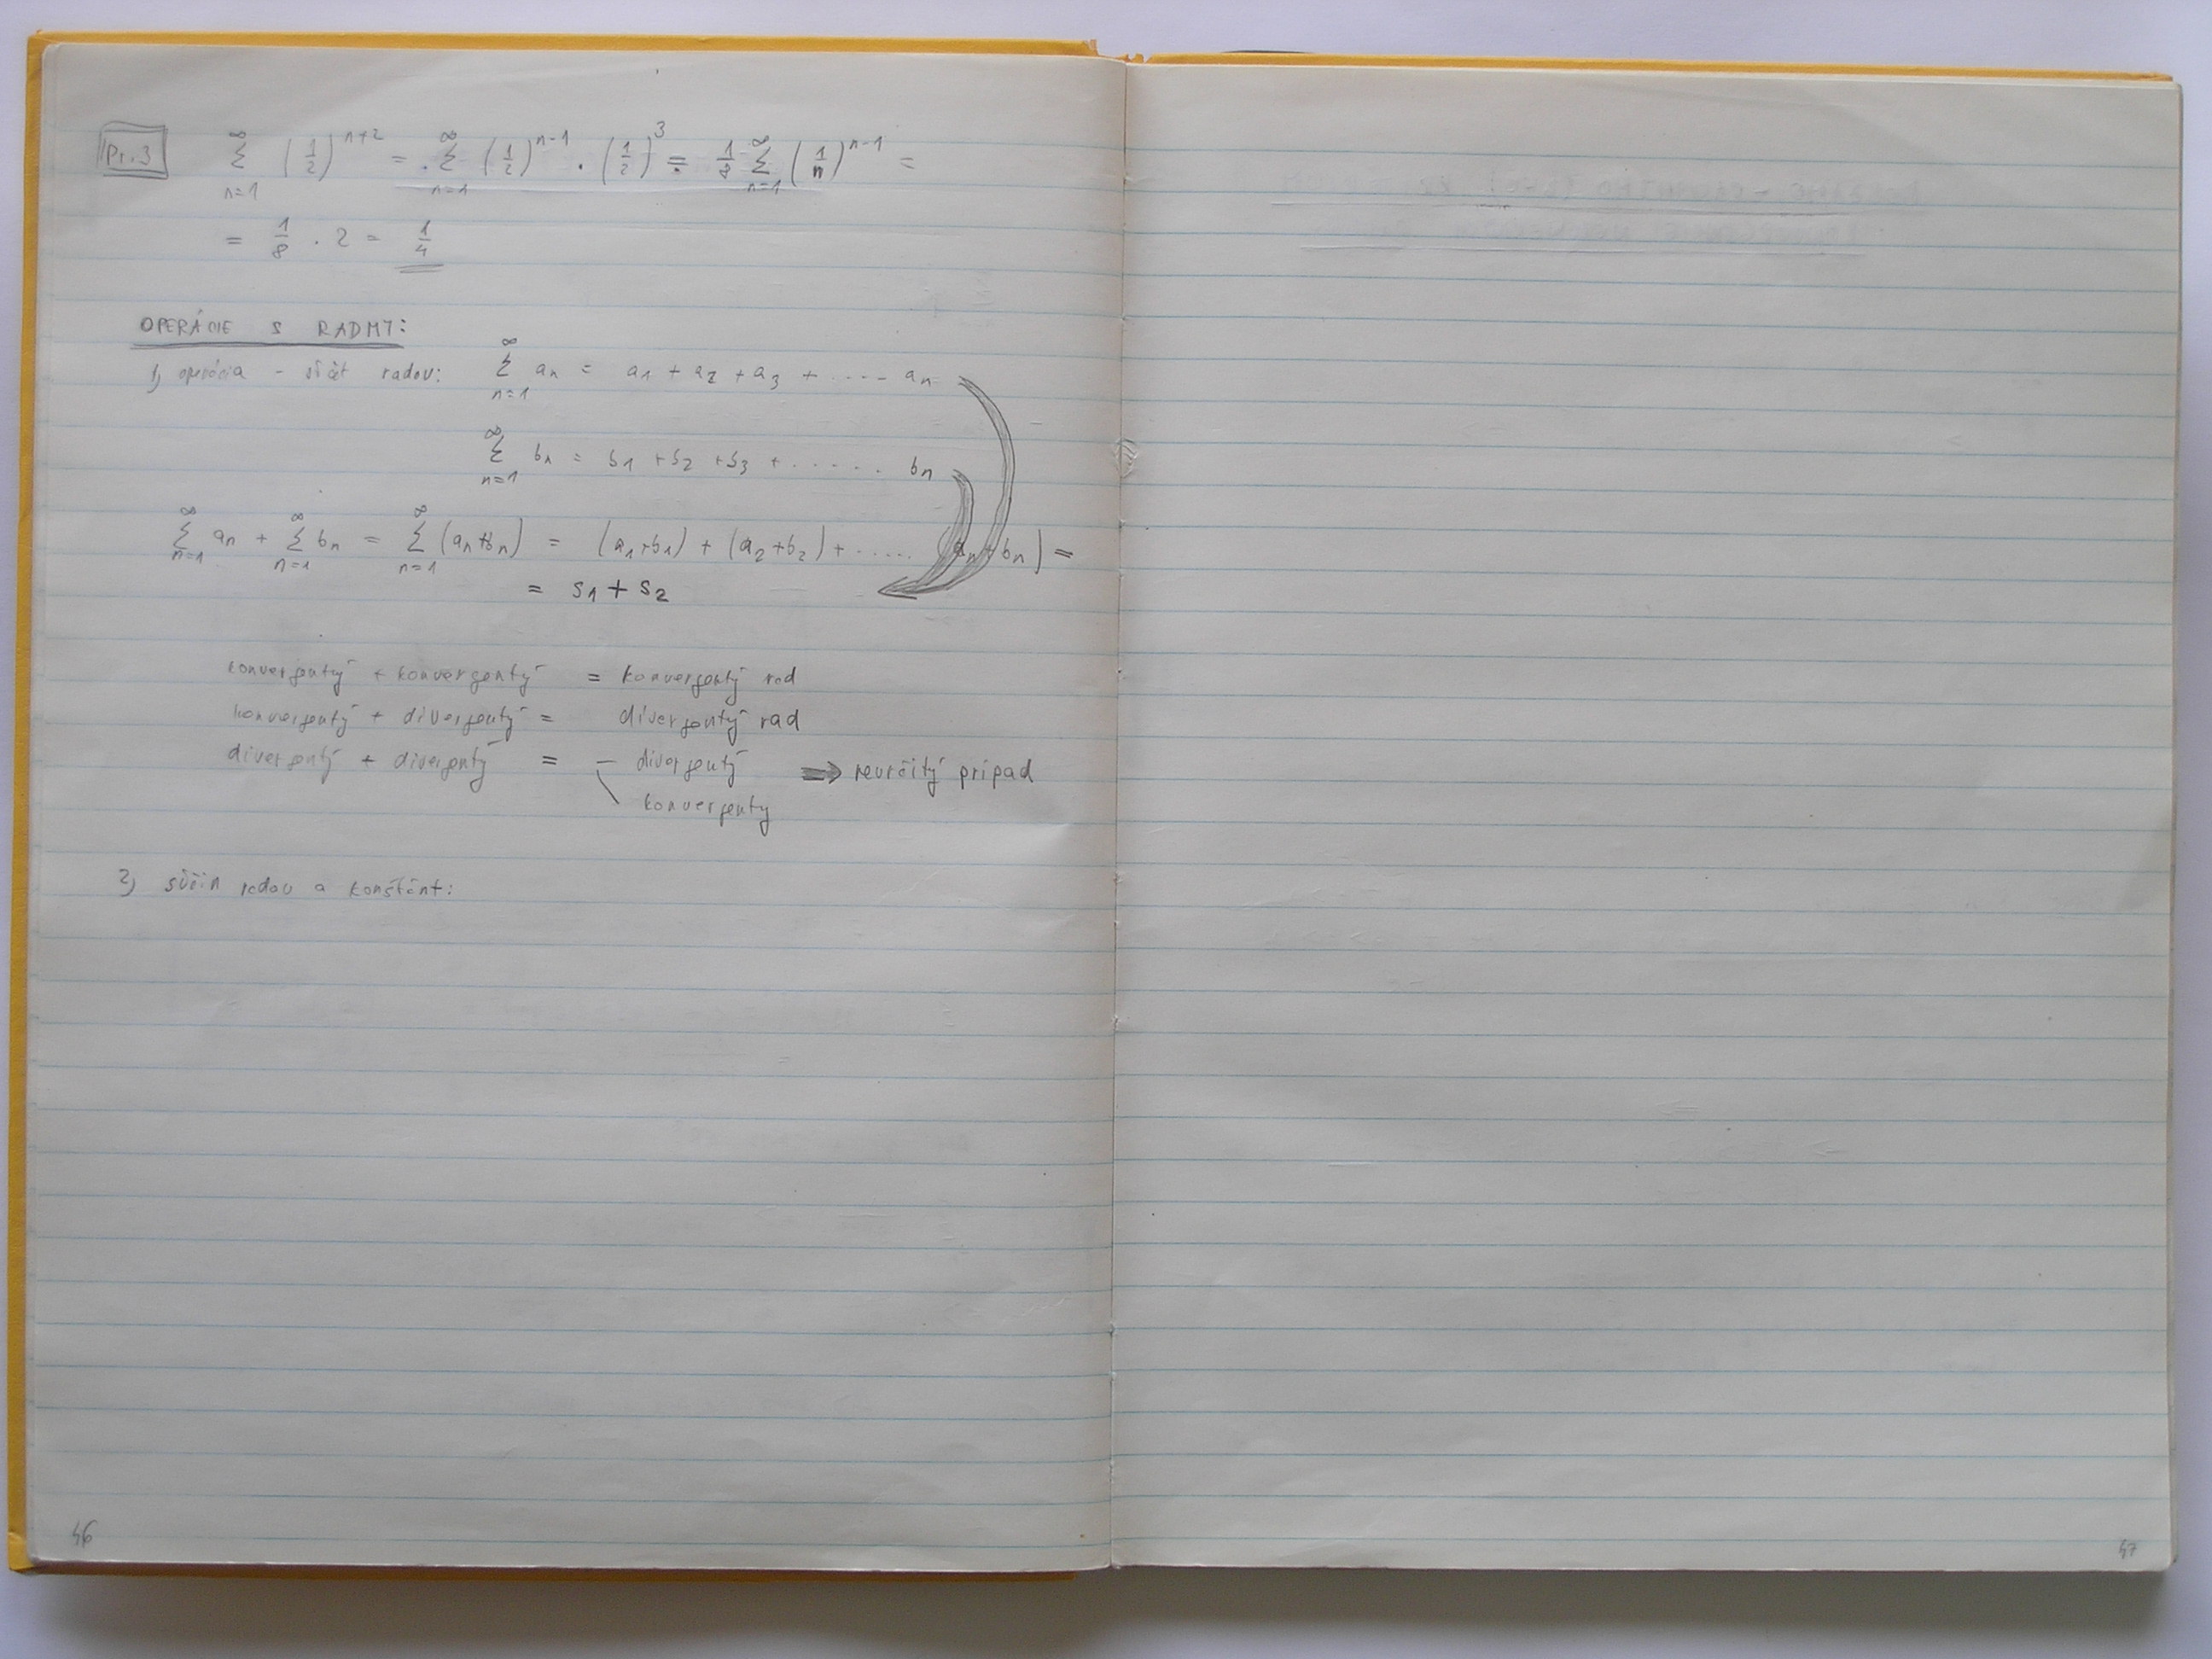 Pr. 3 ∞∑n=1 (1/2)^n+2 = ∞∑n=1 (1/2)^n-1 · (1/2)^3 = 1/8 ∞∑n=1 (1/n)^n-1 =
= 1/8 · 2 = 1/4
OPERÁCIE S RADMI:
1) operácia - súčet radov: ∞∑n=1 an = a1 + a2 + a3 + ..... an
∞∑n=1 bn = b1 + b2 + b3 + ...... bn
∞∑n=1 an + ∞∑n=1 bn = ∞∑n=1 (an+bn) = (a1+b1) + (a2+b2) + ..... (an+bn) =
= s1 + s2
konvergentý + konvergentý = konvergentý rad
konvergentý + divergentý = divergentý rad
divergentý + divergentý = divergentý ⇒ neurčitý prípad
konvergenty
2) súčin radov a konštánt:
46
47